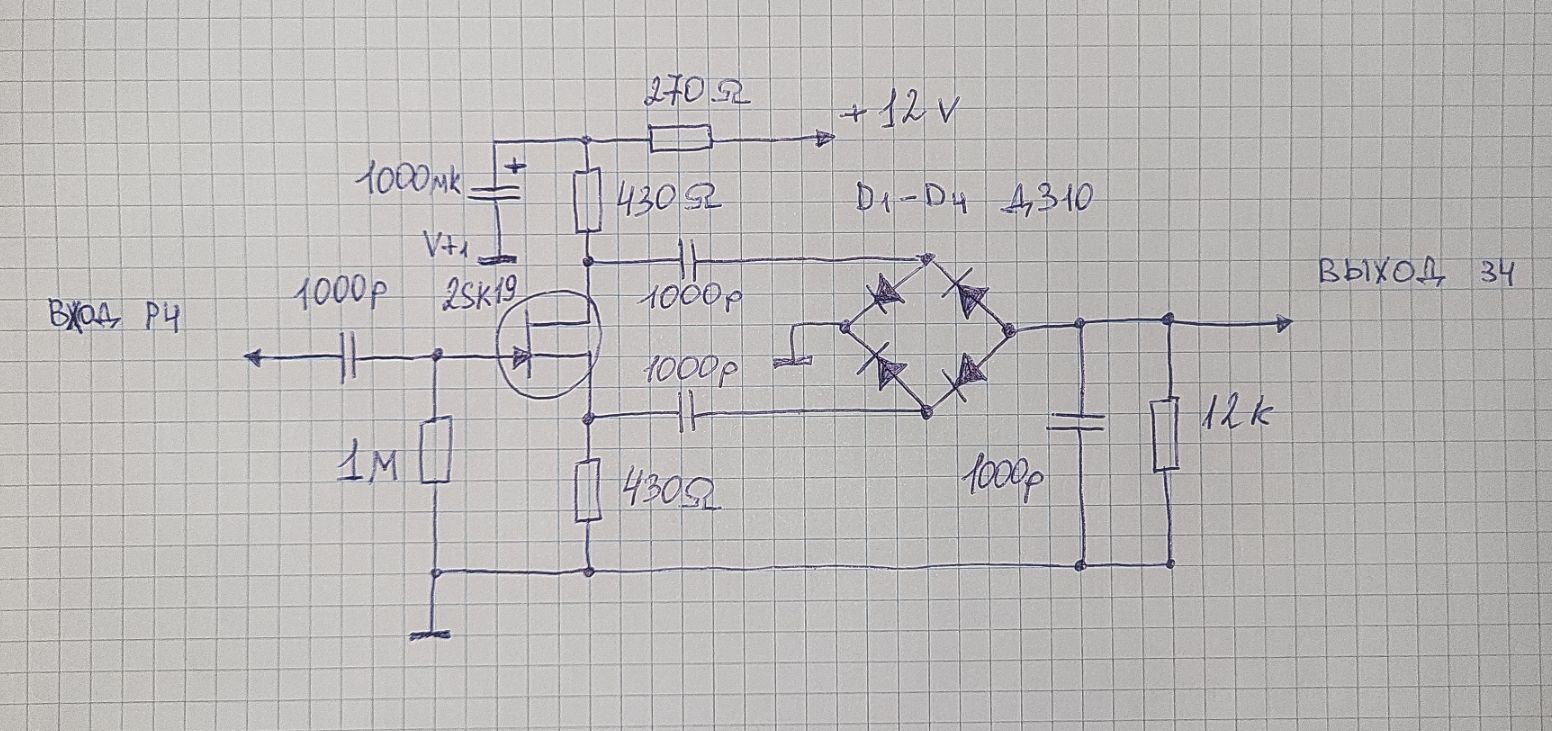 270 Ω
+ 12 V
1000мк
+
430 Ω
D1-D4 Д310
VT1
2SK19
1000p
1000p
ВХОД РЧ
ВЫХОД ЗЧ
1000p
1М
430Ω
1000p
12к